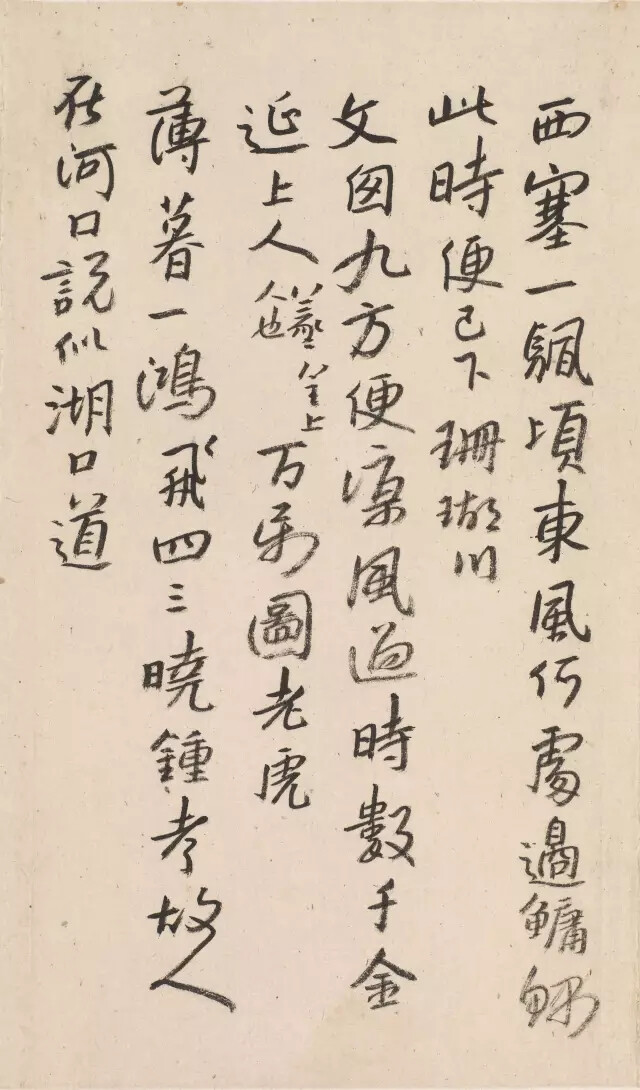 西塞一颿頃東風何處過鱅鯄
此時便已下珊瑚川
文囪九方便涼風過時數千金
延上人
人也
万器圖老虎
薄暮一鴻飛四三曉鍾考故人
在河口說似湖口道